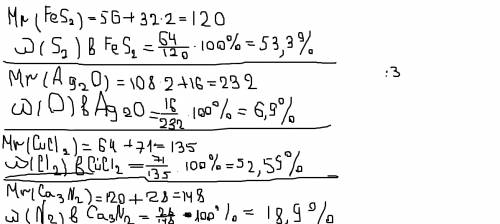 Mr(FeS₂)=56+32·2=120
ω(S₂) в FeS₂=64/120·100%=53,3%
Mr(Ag₂O)=108 2+16=232
ω(O) в Ag2O=16/232·100%=6,9%
:3
Mr(CuCl₂)=64+71=135
ω(Cl₂) в CuCl₂=71/135·100%=52,59%
Mr(Ca₃N₂)=120+28=148
ω(N₂) в Ca₃N₂=28/148·100%=18,9%